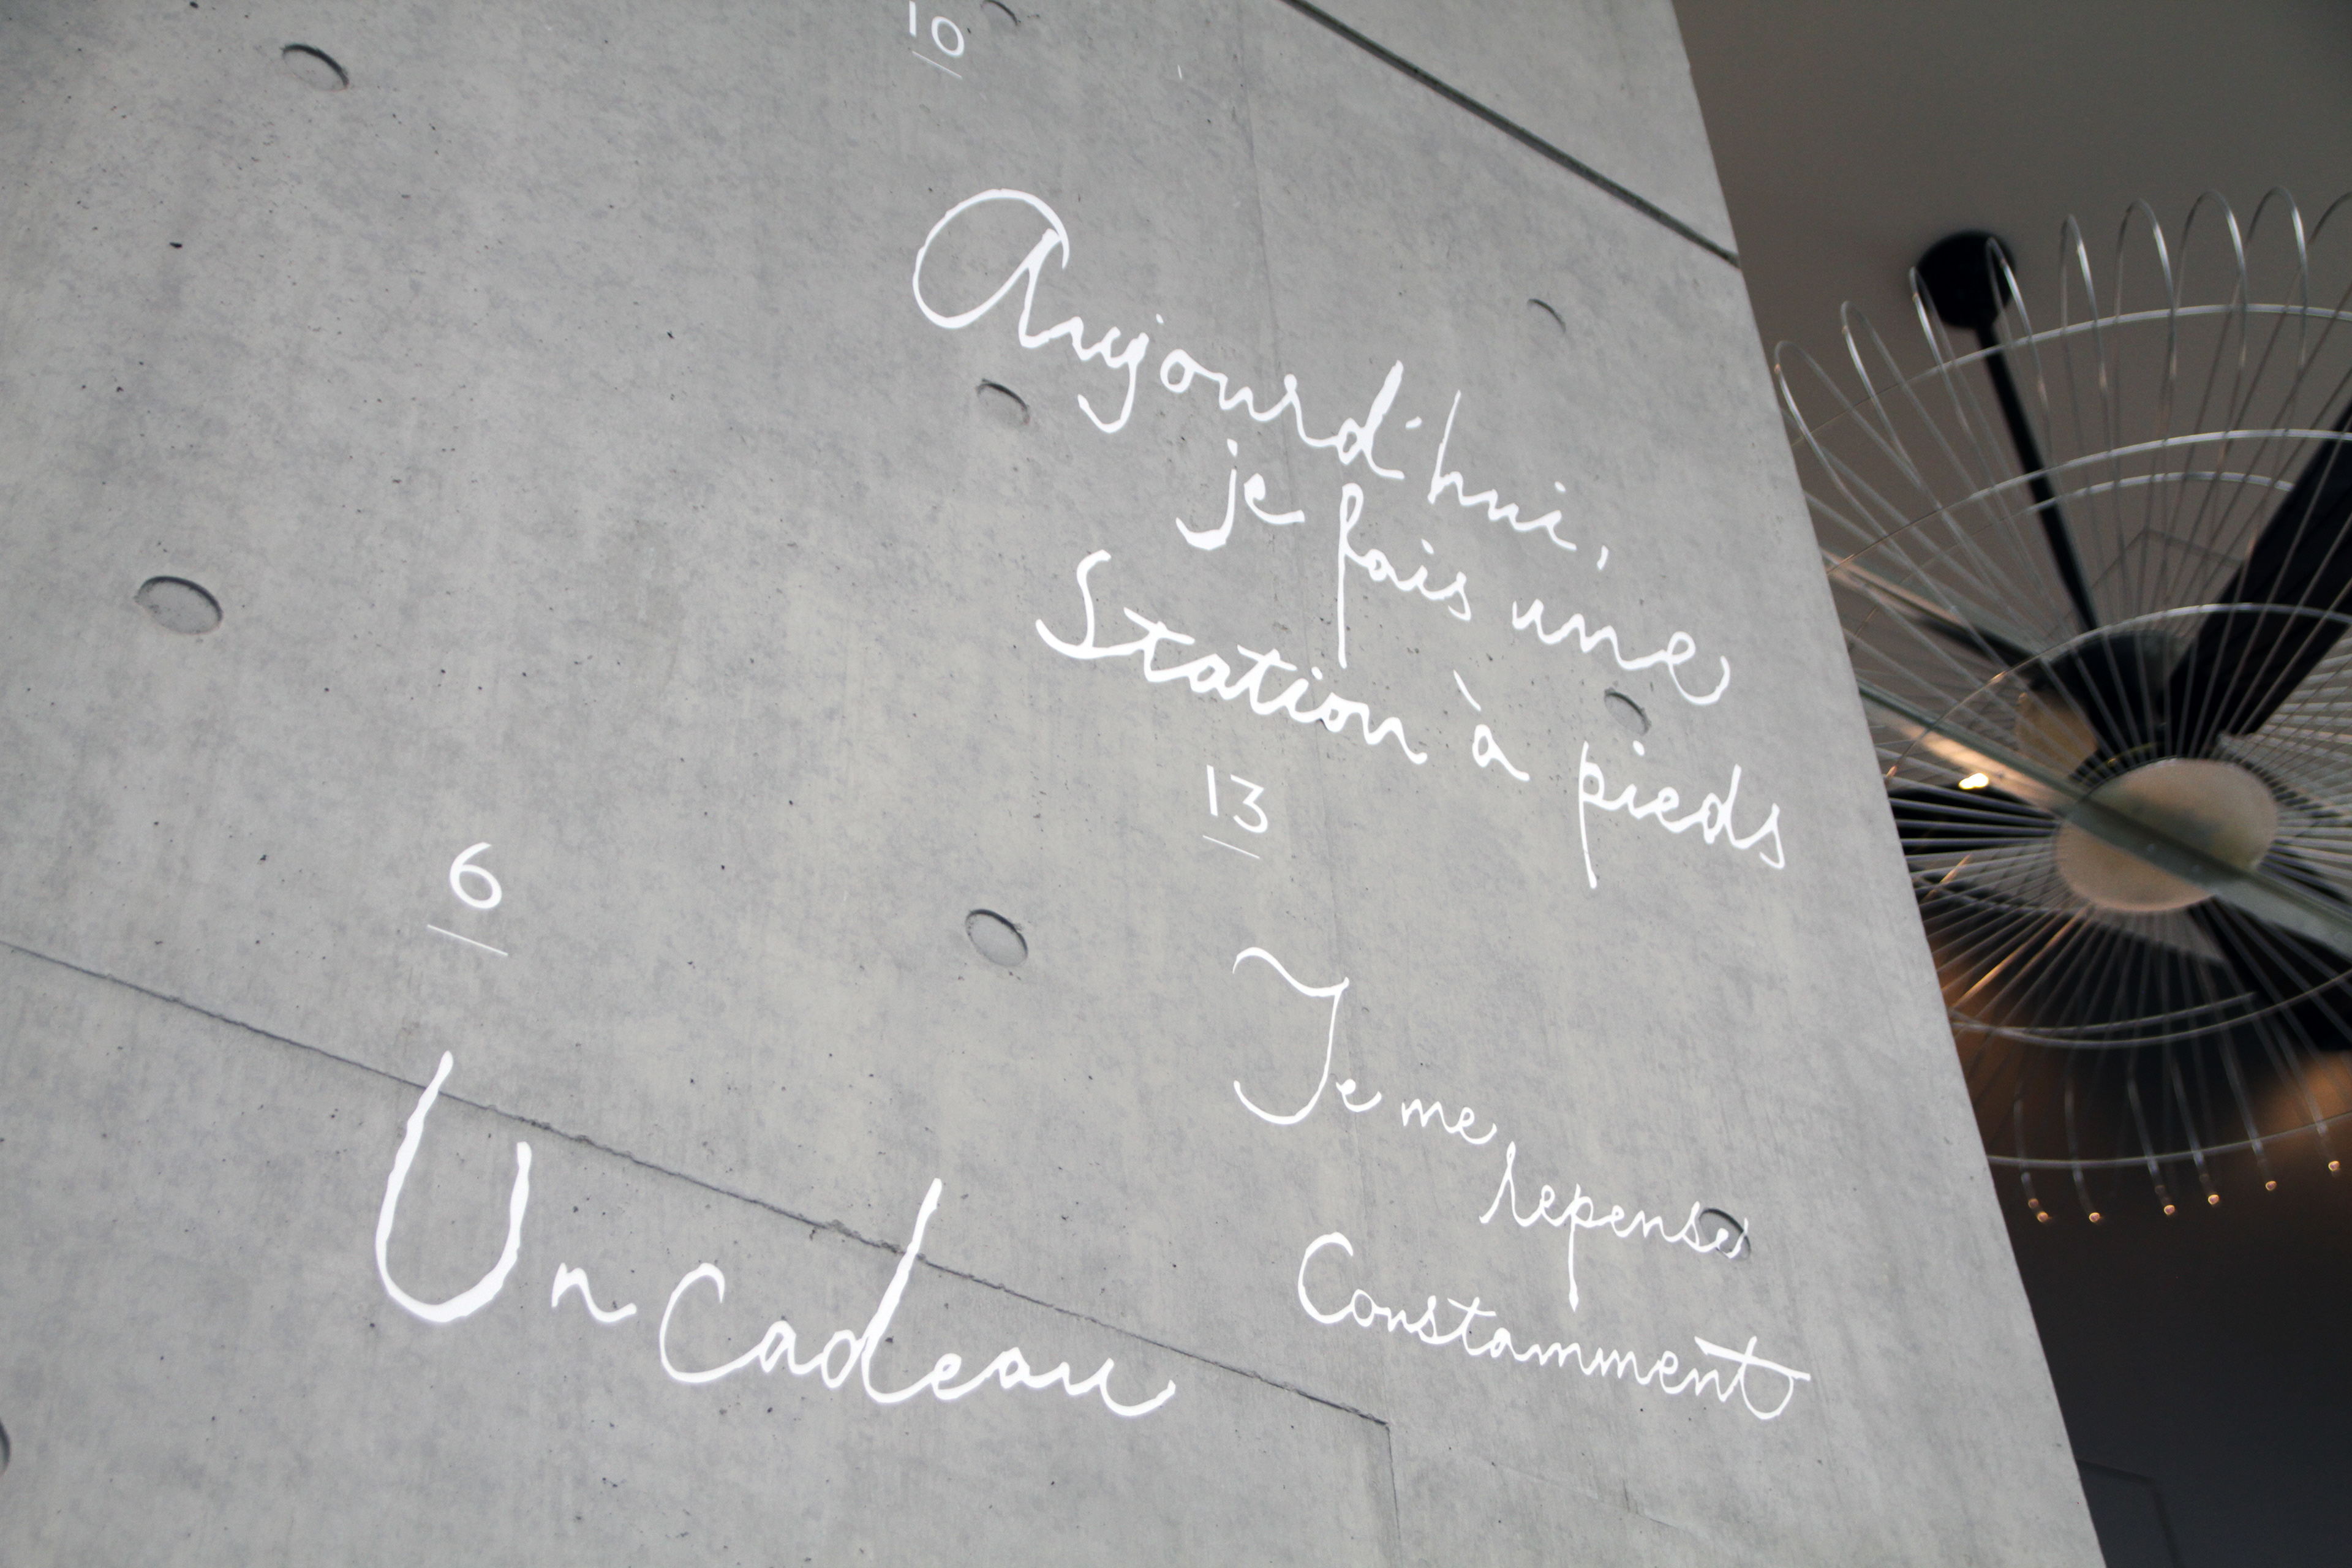 10
Aujourd'hui,
je fais une
Station à pieds
13
Je me
repense
Constamment
6
Un Cadeau